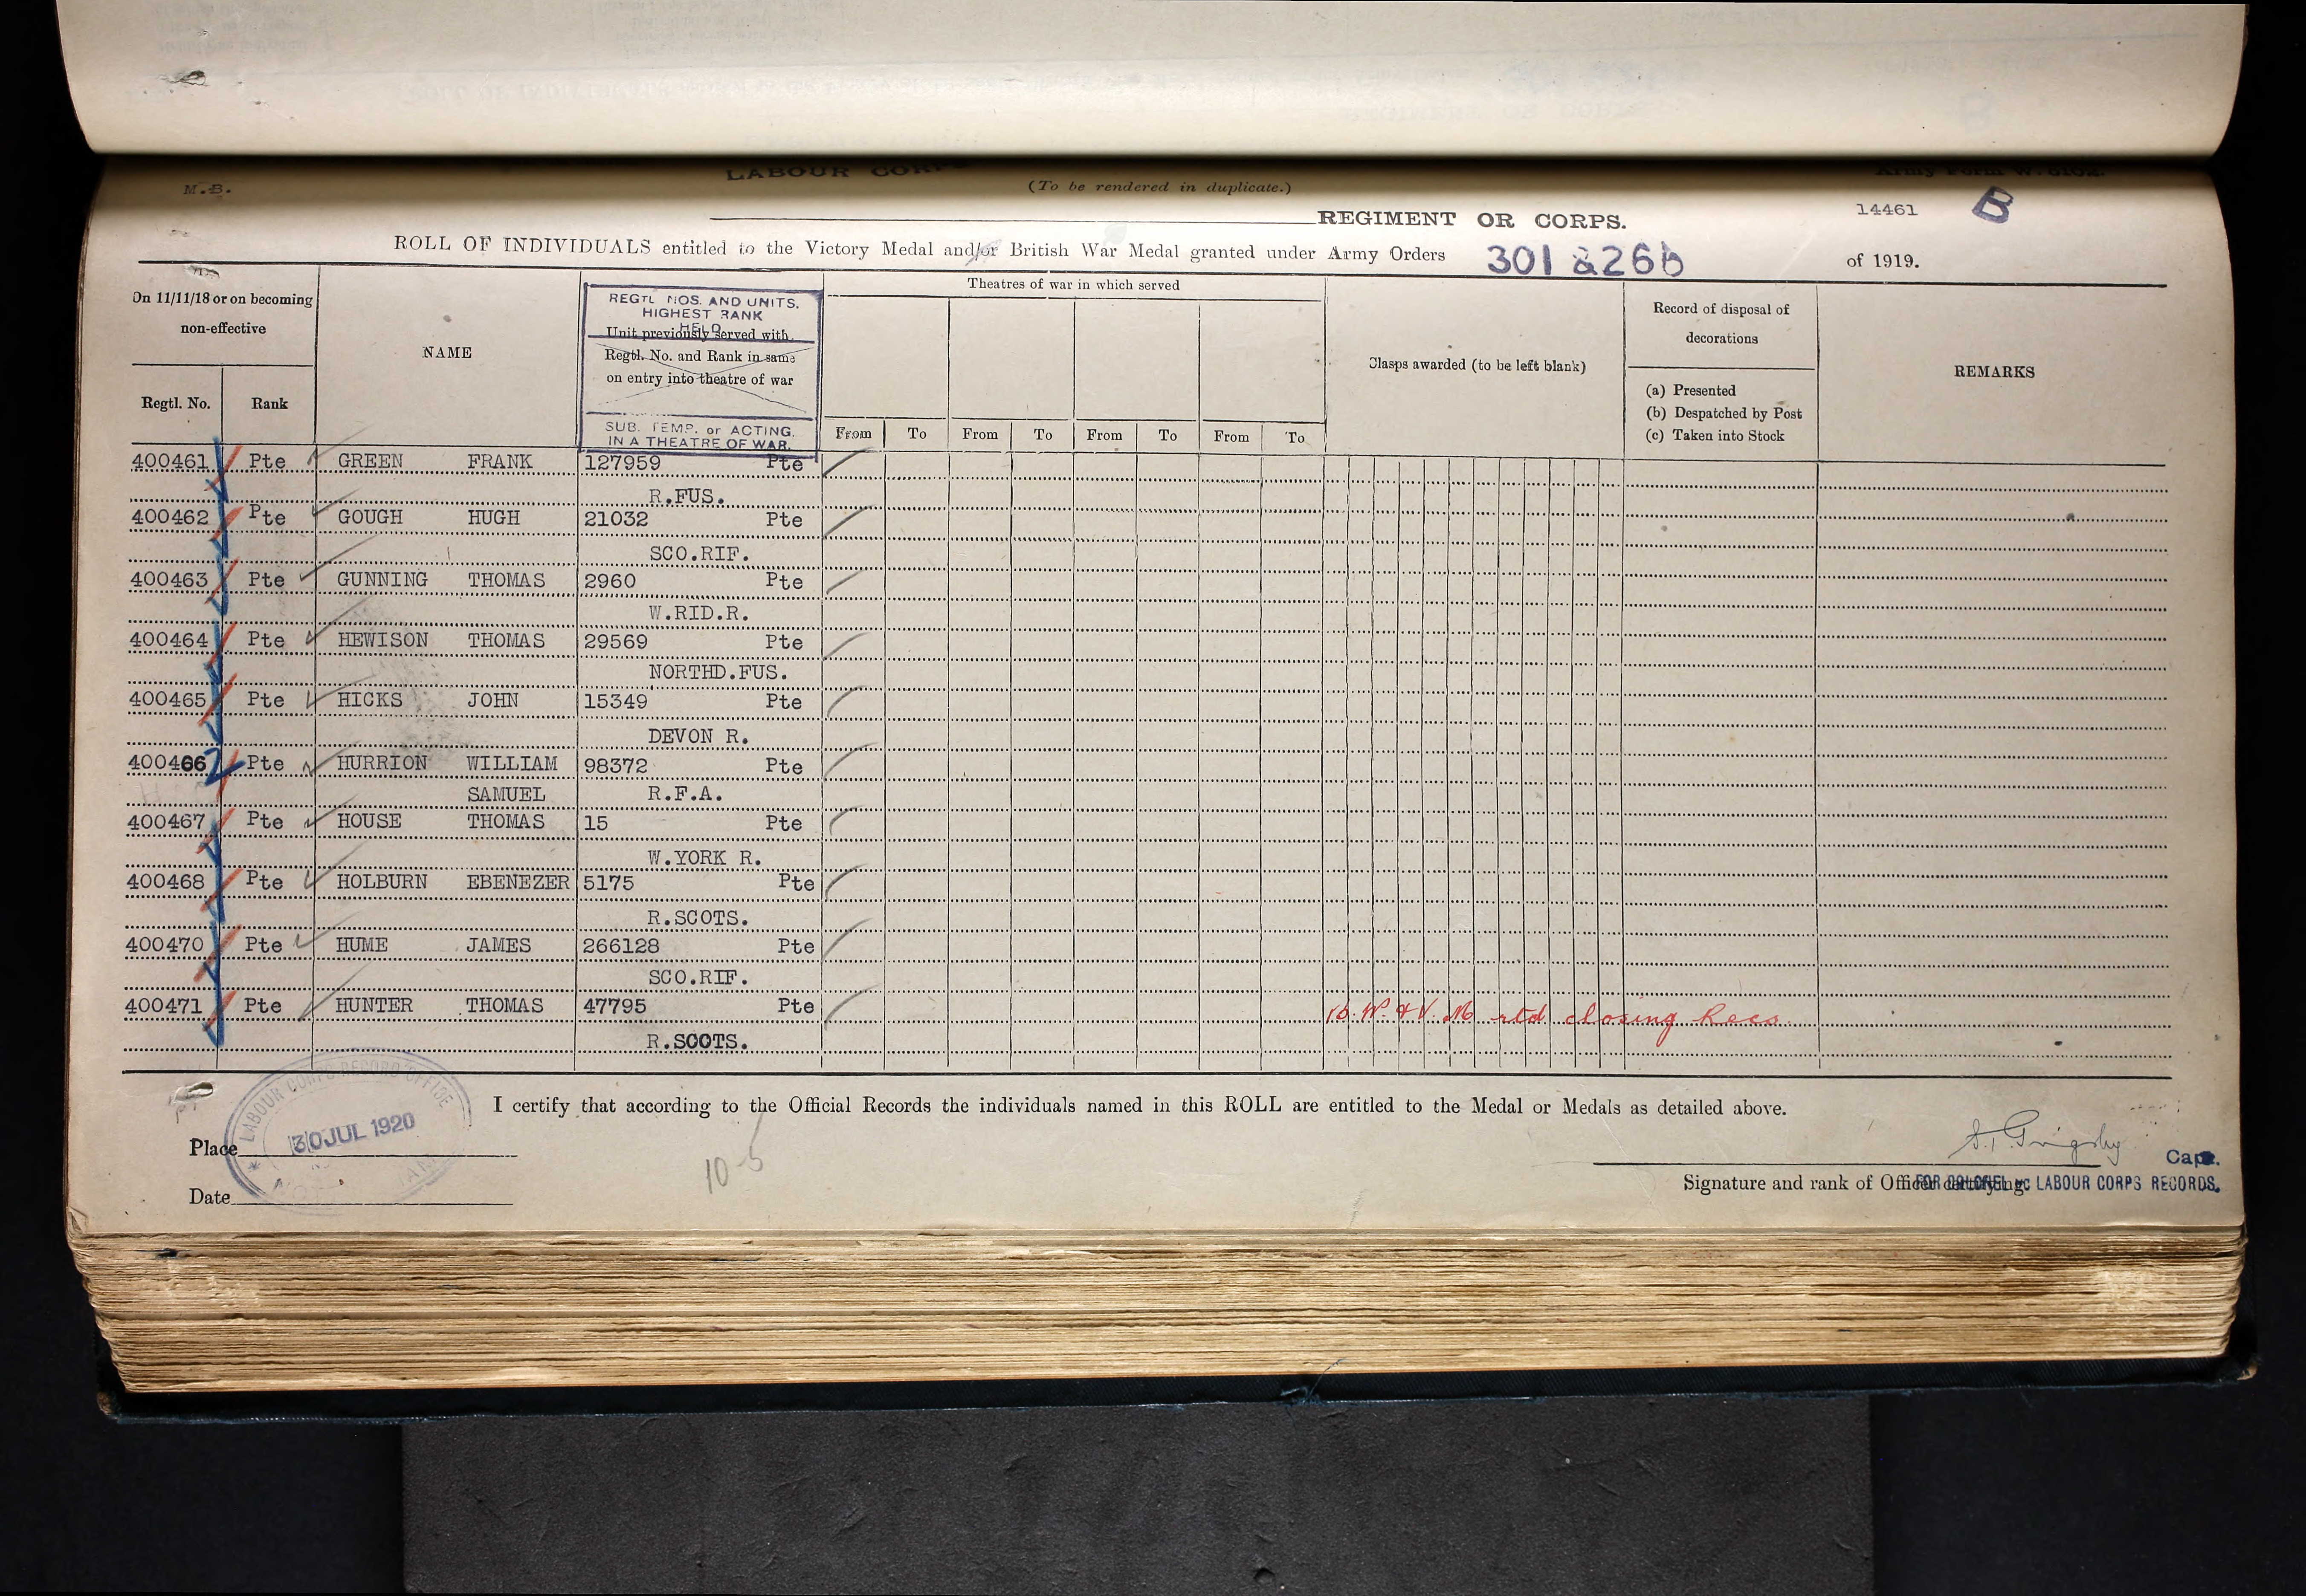 M.B.
LABOUR CORPS
(To be rendered in duplicate.)
Army Form W. 5102.
REGIMENT OR CORPS.
14461
B
ROLL OF INDIVIDUALS entitled to the Victory Medal and/or British War Medal granted under Army Orders 301 & 266 of 1919.
On 11/11/18 or on becoming non-effective
Regtl. No.
Rank
NAME
REGTL NOS. AND UNITS.
HIGHEST RANK
HELD
Unit previously served with
Regtl. No. and Rank in same
on entry into theatre of war
SUB. TEMP. or ACTING.
IN A THEATRE OF WAR.
Theatres of war in which served
From To From To From To From To
Clasps awarded (to be left blank)
Record of disposal of decorations
(a) Presented
(b) Despatched by Post
(c) Taken into Stock
REMARKS
400461 Pte GREEN FRANK 127959 Pte
R.FUS.
400462 Pte GOUGH HUGH 21032 Pte
SCO.RIF.
400463 Pte GUNNING THOMAS 2960 Pte
W.RID.R.
400464 Pte HEWISON THOMAS 29569 Pte
NORTHD.FUS.
400465 Pte HICKS JOHN 15349 Pte
DEVON R.
400466 Pte HURRION WILLIAM 98372 Pte
SAMUEL R.F.A.
400467 Pte HOUSE THOMAS 15 Pte
W.YORK R.
400468 Pte HOLBURN EBENEZER 5175 Pte
R.SCOTS.
400470 Pte HUME JAMES 266128 Pte
SCO.RIF.
400471 Pte HUNTER THOMAS 47795 Pte
B.W. & V.M rtd closing Recs
R.SCOTS.
I certify that according to the Official Records the individuals named in this ROLL are entitled to the Medal or Medals as detailed above.
LABOUR CORPS RECORD OFFICE
30 JUL 1920
Place
10-5
Capt.
Signature and rank of Officer certifying
FOR COLONEL i/c LABOUR CORPS RECORDS.
Date